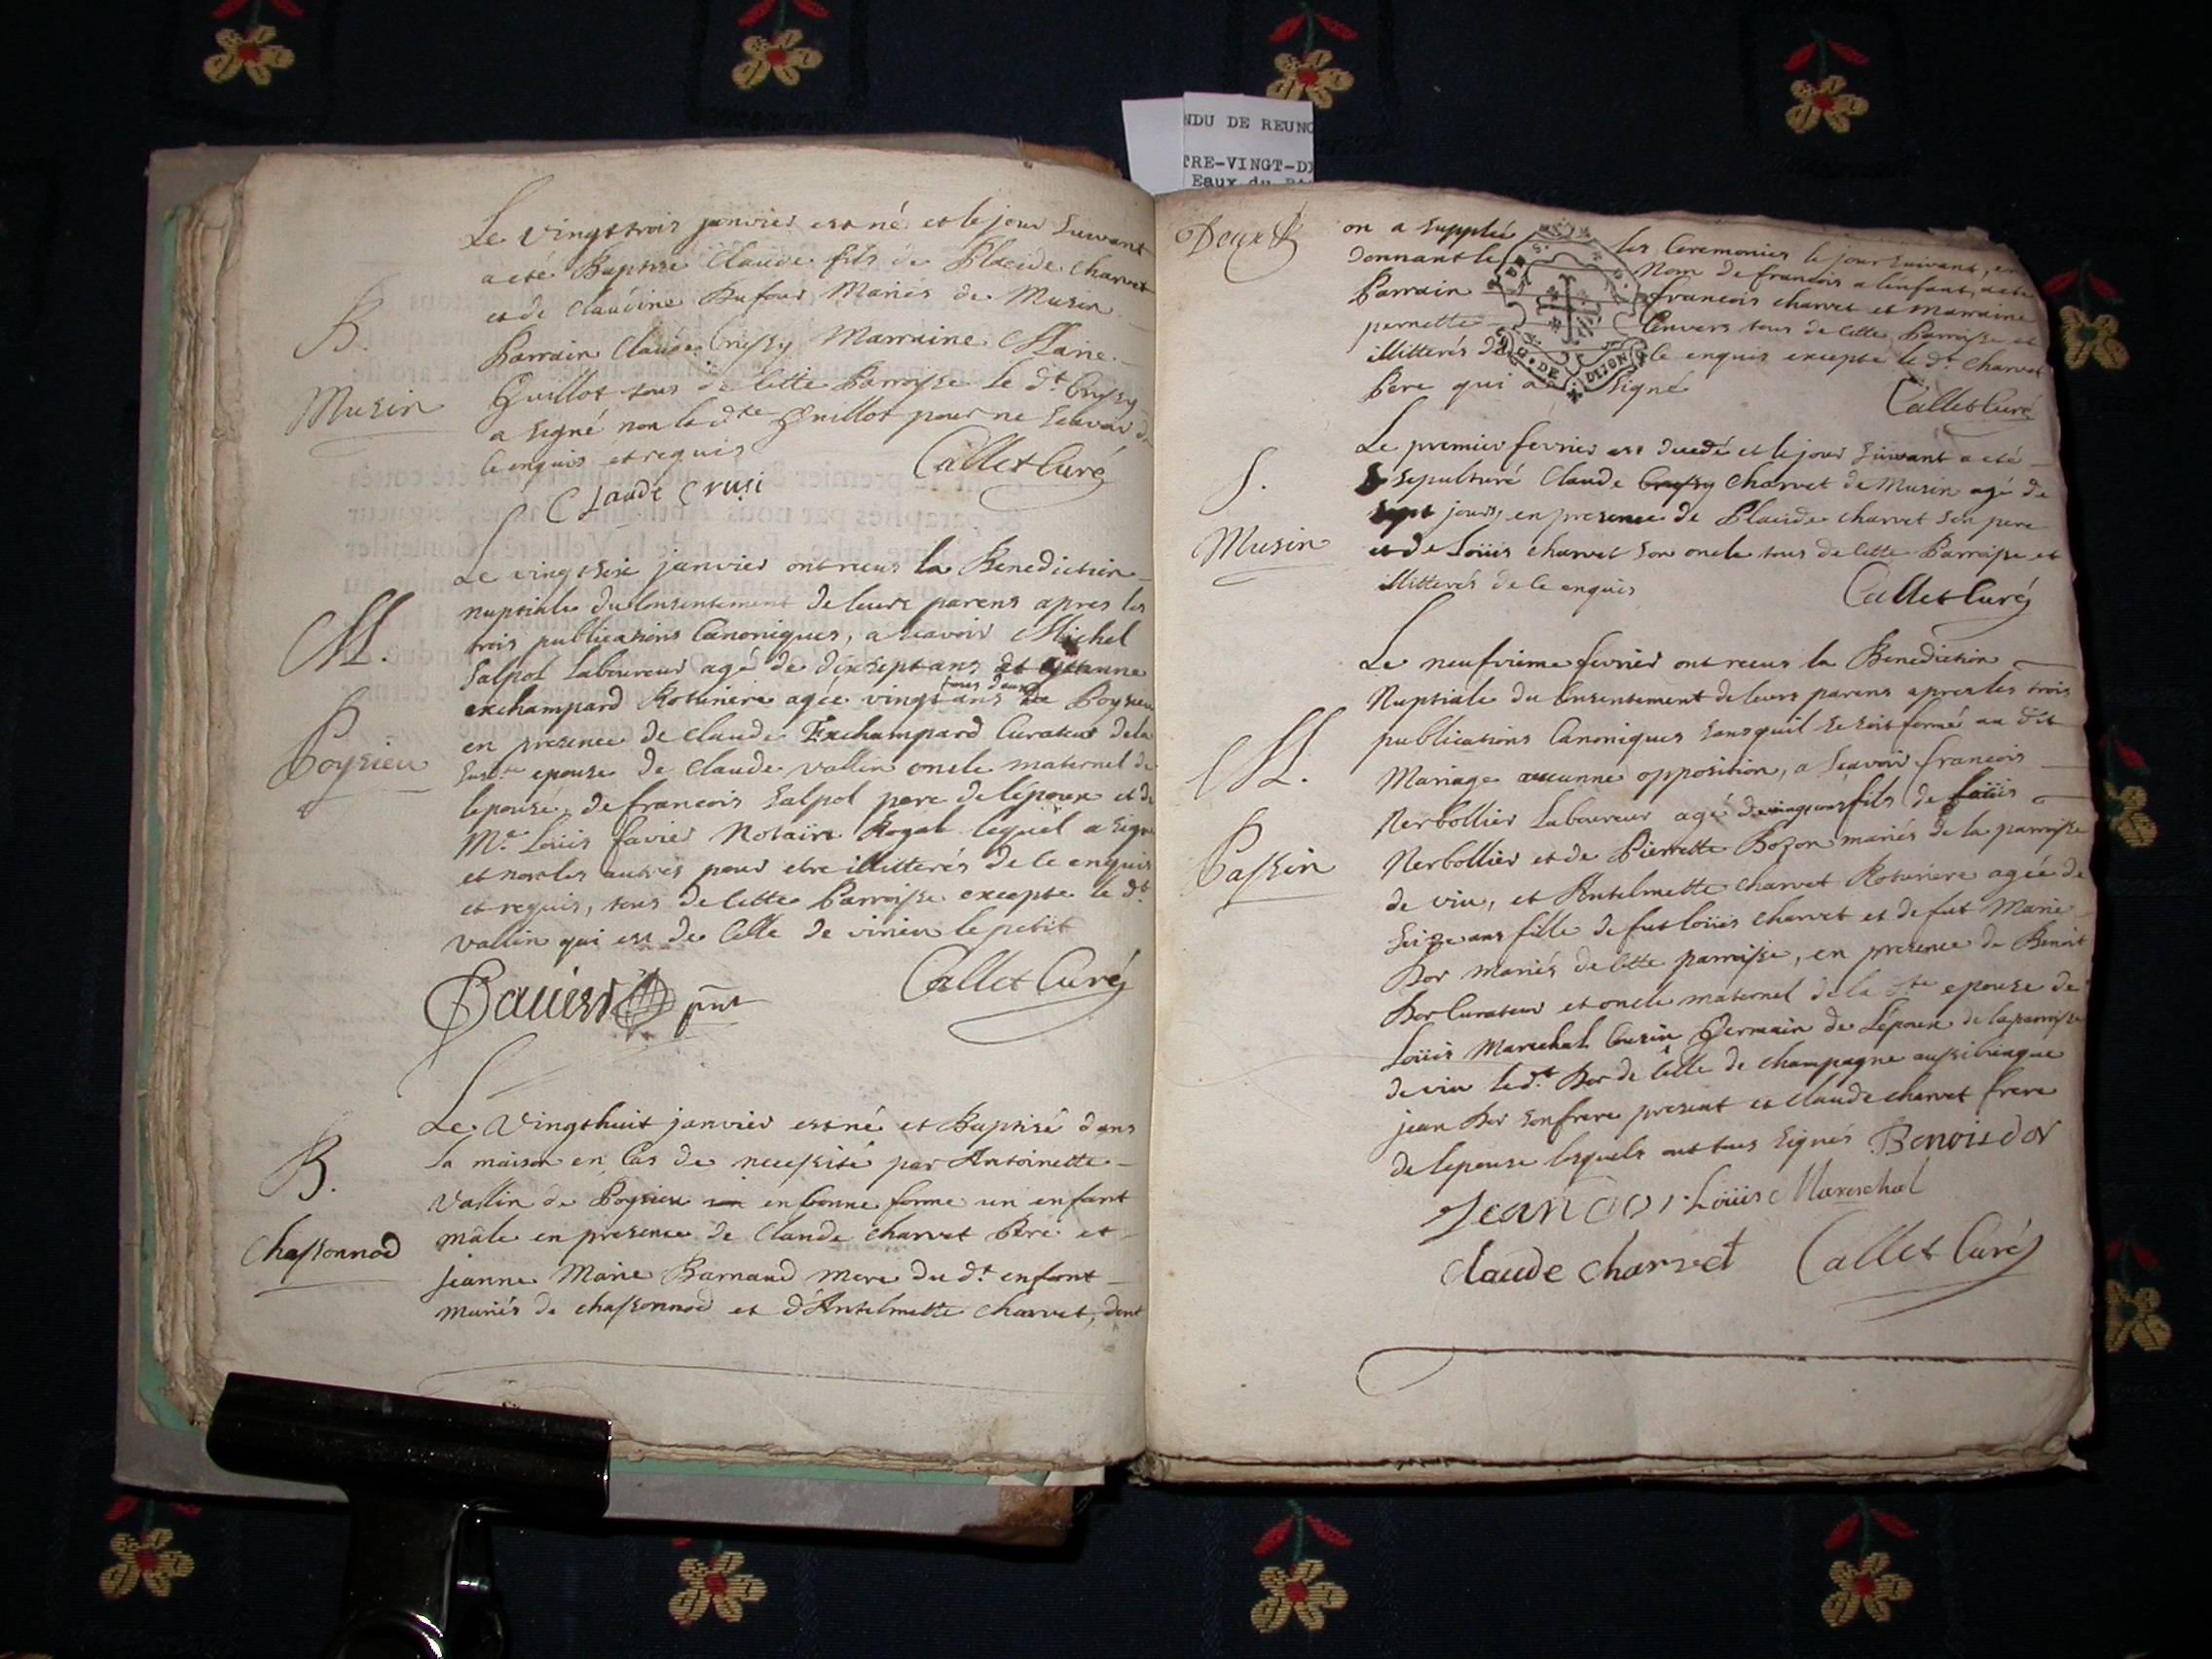 NDU DE REUNO
TRE-VINGT-DI
Eaux du
Le vingt trois janvier est né et le jour suivant
a eté Baptisé Claude fils de Placide Charvet
et de Claudine Dufour Mariés de Musin
Parrain Claude Crussy Marraine Marie
B.
Guillot tous de cette Parroisse le dt. Crussy
Musin
a signé non la dte Guillot pour ne scavoir de
ce enquis et requis
Callet Curé
Claude Crusi
Le vingt seise janvier ont receus la Benediction
nuptiale du Consentement de leurs parens apres les
trois publications Canoniques, a scavoir Michel
M.
Salpol Laboureur agé de dix sept ans et etienne
exchampard Roturiere agée vingt ans de Poysieu
tous deux
en presence de Claude Exchampard Curateur de la
Poysieu
susdte epouse de Claude Vallin oncle maternel de
lepouse, de francois Salpol pere de lepoux et de
Me. Loüis favier Notaire Royal lequel a signé
et non les autres pour etre illitterés de ce enquis
et requis, tous de cette Parroisse excepté le dt.
Vallin qui est de Celle de virieu le petit
Callet Curé
Favier pnt
Le Vingt huit janvier est né et Baptisé dans
la maison en Cas de necessité par Antoinette
B.
Vallin de Poysieu en bonne forme un enfant
mâle en presence de Claude Charvet Pere et
Chassonnod
jeanne Marie Barnaud mere du dt. enfant
mariés de chassonnod et d'Antelmette Charvet, dont
Deux
on a supplée les Ceremonies le jour suivant, en
donnant le Nom de francois a lenfant, a eté
Parrain francois charvet et Marraine
pernette Convers tous de Cette Parroisse et
illitterés de ce enquis excepté le dt. Charvet
Pere qui a signé
G. DE DIJON
Callet Curé
Le premier fevrier est decedé et le jour suivant a eté
S.
sepulturé Claude Crussy Charvet de Musin agé de
sept jours, en presence de Placide charvet son pere
Musin
et de Loüis charvet son oncle tous de Cette Parroisse et
illitterés de ce enquis
Callet Curé
Le neufvieme fevrier ont receus la Benediction
Nuptiale du Consentement de leurs parens apres les trois
publications Canoniques sans quil se soit formé au dit
M.
Mariage aucunne opposition, a scavoir francois
Nerbollier Laboureur agé de vingt ans fils de Loüis
Passin
Nerbollier et de Pierrette Bozon mariés de la parroisse
de viu, et Antelmette charvet Roturiere agée de
Seize ans fille de fut Loüis charvet et de fut Marie
Dor mariés de Cette parroisse, en presence de Benoit
Dor Curateur et oncle maternel de la dte epouse de
Loüis Marechal Cousin Germain de Lépoux de la parroisse
de viu le dt. Dor de Celle de champagne aussi bien que
jean Dor son frere present et Claude charvet frere
de lepouse lesquels ont tous signés Benoist dor
Jean dor Loüis Mareschal
Claude charvet Callet Curé